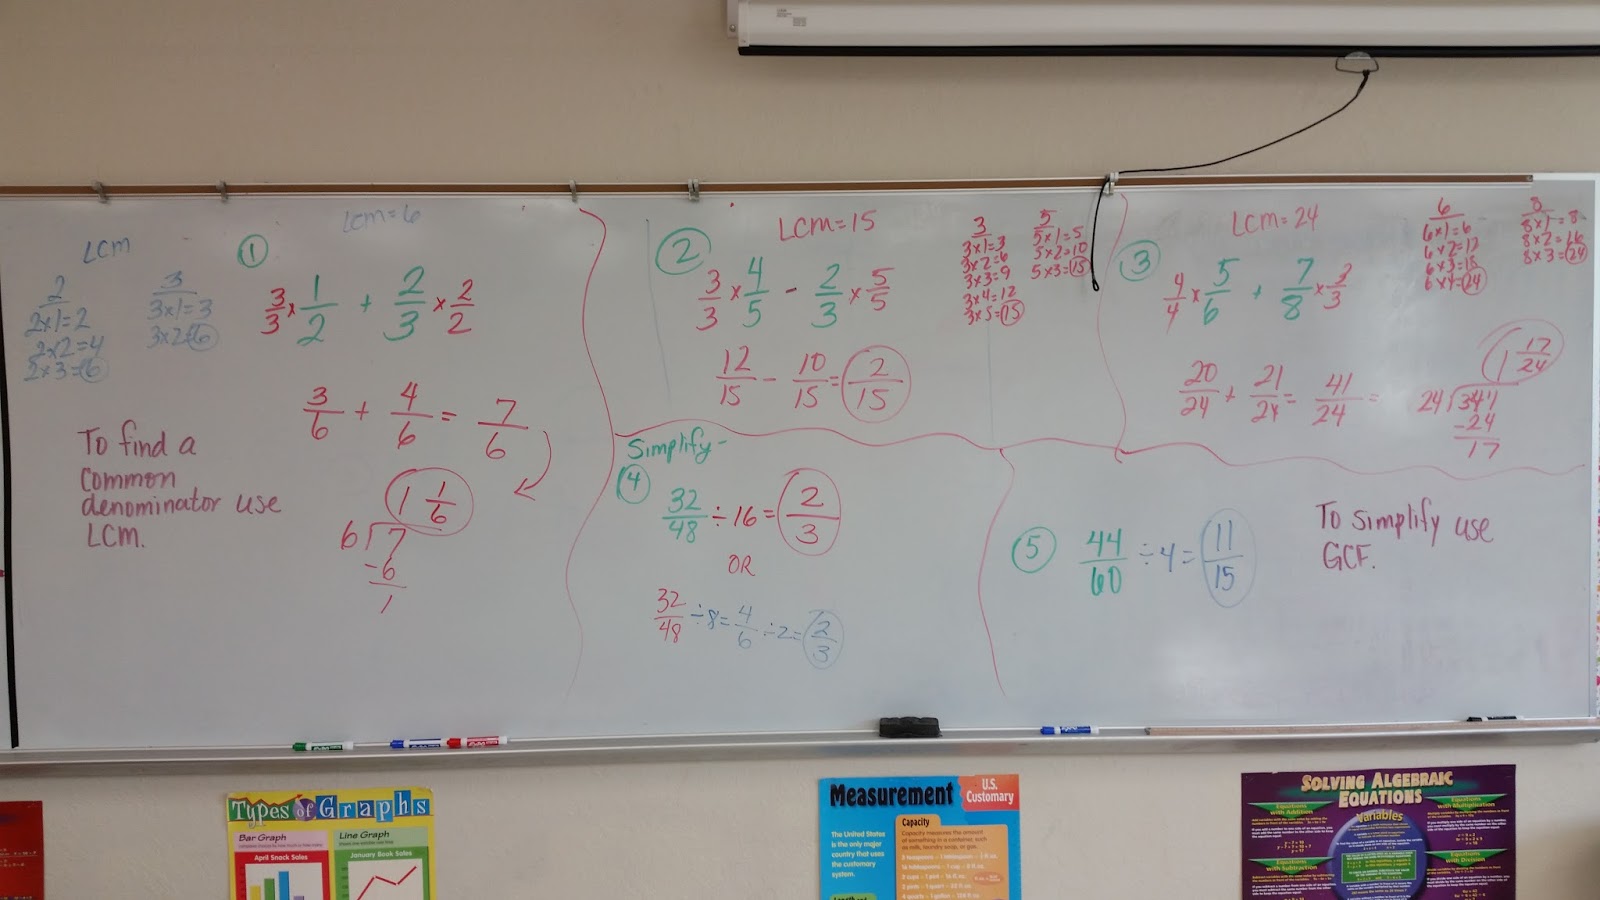 LCM
2
2x1=2
2x2=4
2x3=6
3
3x1=3
3x2=6
① LCM=6
3/3 x 1/2 + 2/3 x 2/2
3/6 + 4/6 = 7/6
1 1/6
6)7
-6
1
To find a
common
denominator use
LCM.
② LCM=15
3/3 x 4/5 - 2/3 x 5/5
12/15 - 10/15 = 2/15
3
3x1=3
3x2=6
3x3=9
3x4=12
3x5=15
5
5x1=5
5x2=10
5x3=15
③ LCM=24
4/4 x 5/6 + 7/8 x 3/3
20/24 + 21/24 = 41/24 =
1 17/24
-24
17
6
6x1=6
6x2=12
6x3=18
6x4=24
8
8x1=8
8x2=16
8x3=24
Simplify-
④ 32/48 ÷ 16 = 2/3
OR
32/48 ÷ 8 = 4/6 ÷ 2 = 2/3
⑤ 44/60 ÷ 4 = 11/15
To simplify use
GCF.
Types of Graphs
Bar Graph
April Snack Sales
Line Graph
January Book Sales
Measurement
U.S.
Customary
The United States
is the only major
country that uses
the customary
system.
Capacity
Solving Algebraic
Equations
Equations
with Addition
Equations
with Multiplication
Variables
Equations
with Subtraction
Equations
with Division